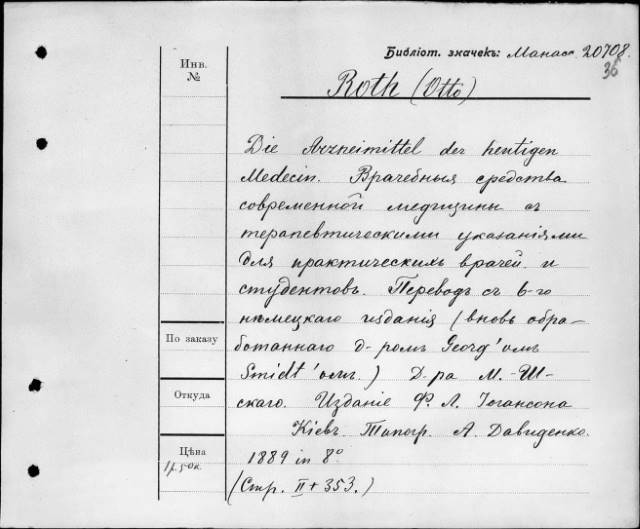 Библіот. значекъ: Манасс. 20708.
36
Инв.
№
Roth (Otto)
Die Arzneimittel der heutigen
Medecin. Врачебныя средства
современной медицины съ
терапевтическими указаніями
для практическихъ врачей и
студентовъ. Переводъ съ 6-го
нѣмецкаго изданія (вновь обра-
ботаннаго д-ромъ Georg'омъ
Smidt'омъ.) Д-ра М.-Ш-
скаго. Изданіе Ф. Л. Іогансона
Кіевъ Типогр. А. Давиденко.
1889 in 8º
(Стр. II + 353.)
По заказу
Откуда
Цѣна
1 р. 50 к.